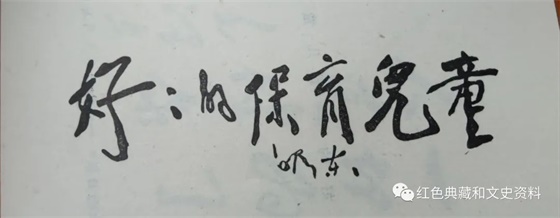 好:的保育兒童
泽东
红色典藏和文史资料